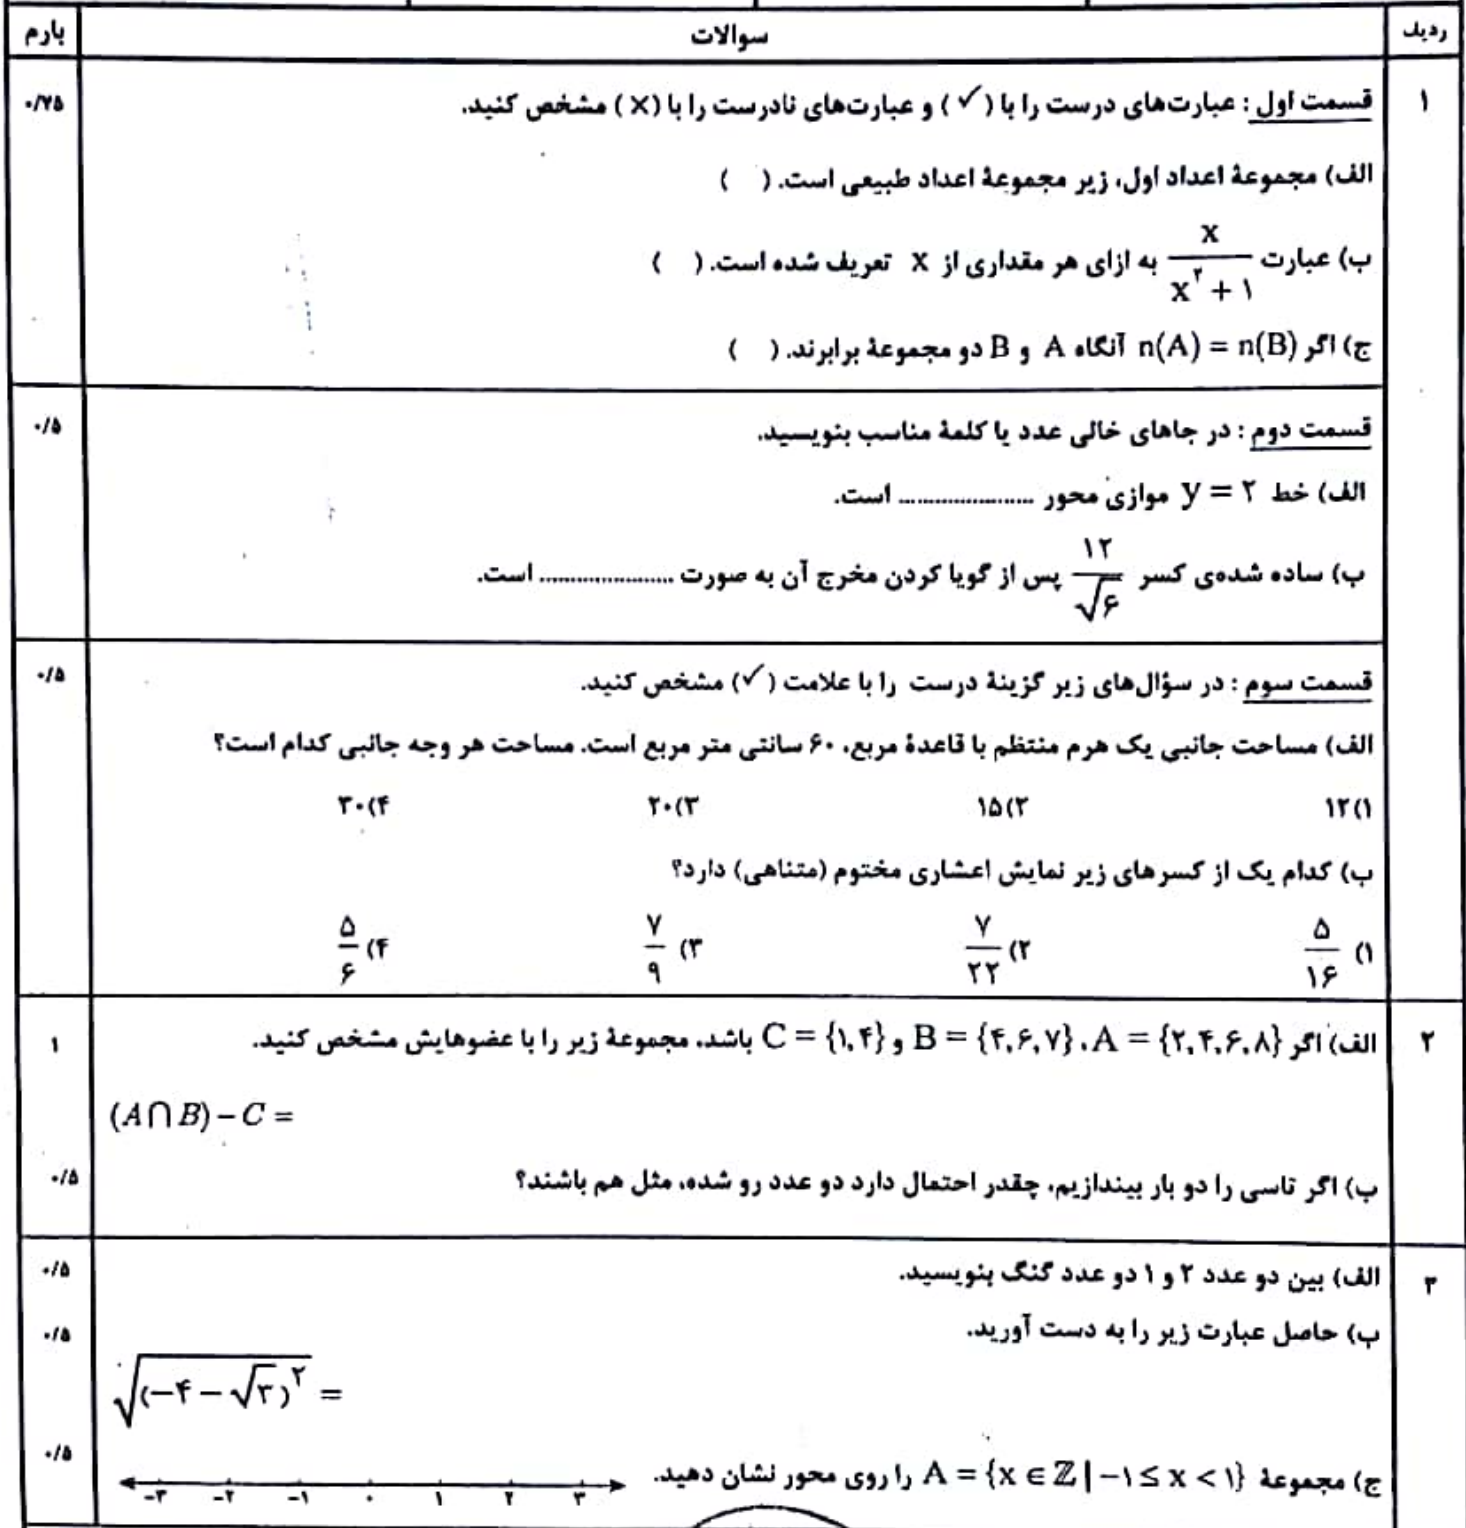 ردیف سوالات بارم
۱ قسمت اول : عبارت‌های درست را با (✓) و عبارت‌های نادرست را با (×) مشخص کنید. ۰/۷۵
الف) مجموعهٔ اعداد اول، زیر مجموعهٔ اعداد طبیعی است. ( )
ب) عبارت x/(x^۲ + ۱) به ازای هر مقداری از x تعریف شده است. ( )
ج) اگر n(A) = n(B) آنگاه A و B دو مجموعهٔ برابرند. ( )
قسمت دوم : در جاهای خالی عدد یا کلمهٔ مناسب بنویسید. ۰/۵
الف) خط y = ۲ موازی محور ...................... است.
ب) ساده شده‌ی کسر ۱۲/√۶ پس از گویا کردن مخرج آن به صورت ...................... است.
قسمت سوم : در سؤال‌های زیر گزینهٔ درست را با علامت (✓) مشخص کنید. ۰/۵
الف) مساحت جانبی یک هرم منتظم با قاعدهٔ مربع، ۶۰ سانتی متر مربع است. مساحت هر وجه جانبی کدام است؟
۱) ۱۲ ۲) ۱۵ ۳) ۲۰ ۴) ۳۰
ب) کدام یک از کسرهای زیر نمایش اعشاری مختوم (متناهی) دارد؟
۱) ۵/۱۶ ۲) ۷/۲۲ ۳) ۷/۹ ۴) ۵/۶
۲ الف) اگر A = {۲,۴,۶,۸} ، B = {۴,۶,۷} و C = {۱,۴} باشد، مجموعهٔ زیر را با عضوهایش مشخص کنید. ۱
(A∩B) – C =
ب) اگر تاسی را دو بار بیندازیم، چقدر احتمال دارد دو عدد رو شده، مثل هم باشند؟ ۰/۵
۳ الف) بین دو عدد ۲ و ۱ دو عدد گنگ بنویسید. ۰/۵
ب) حاصل عبارت زیر را به دست آورید. ۰/۵
√((–۴ – √۳)^۲) =
ج) مجموعهٔ A = {x ∈ ℤ | –۱ ≤ x < ۱} را روی محور نشان دهید. ۰/۵
–۳ –۲ –۱ ۰ ۱ ۲ ۳